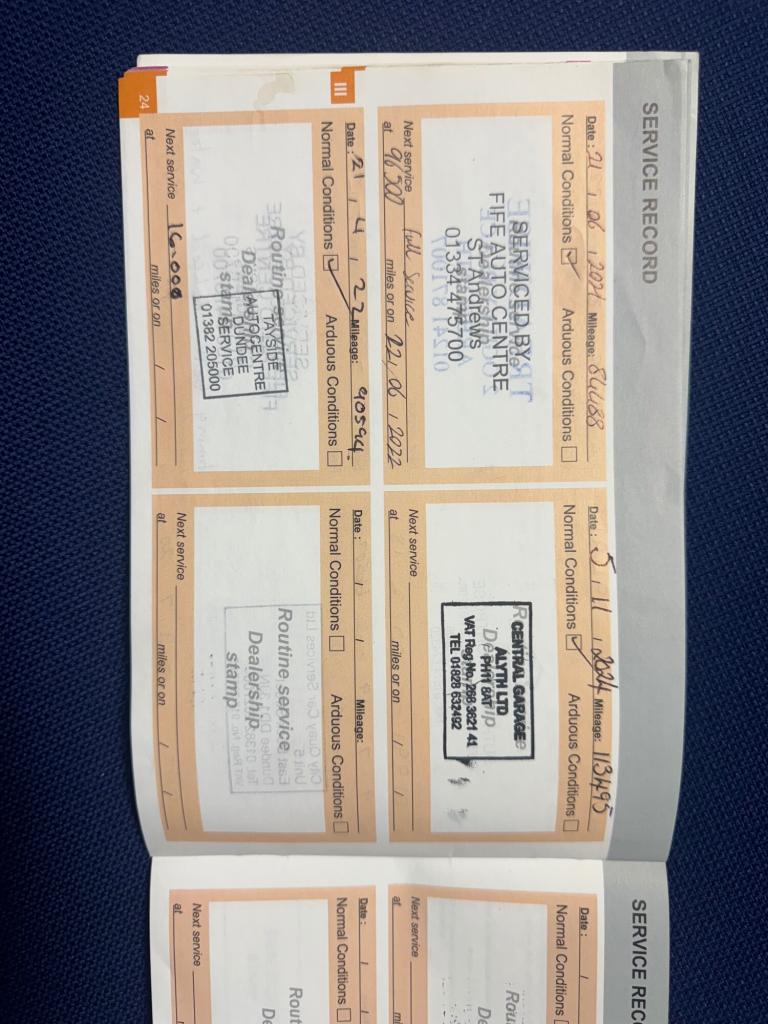 SERVICE RECORD
Date: 21, 06, 2021 Mileage: 84488
Normal Conditions ☑ Arduous Conditions ☐
SERVICED BY
FIFE AUTO CENTRE
ST Andrews
01334 475700
Next service Full Service
at 96500 miles or on 22, 06, 2022
Date: 5, 11, 2024 Mileage: 113495
Normal Conditions ☑ Arduous Conditions ☐
CENTRAL GARAGE
ALYTH LTD
PH11 8AT
VAT Reg No. 268 3621 41
TEL 01828 632492
Next service
at miles or on / /
III
Date: 21, 4, 22 Mileage: 90594
Normal Conditions ☑ Arduous Conditions ☐
Routine
Deal
stamp
TAYSIDE
AUTOCENTRE
DUNDEE
SERVICE
01382 205000
Next service 16.000
at miles or on / /
Date: / / Mileage:
Normal Conditions ☐ Arduous Conditions ☐
Routine service
Dealership
stamp
Next service
at miles or on / /
24
SERVICE REC
Date: /
Normal Conditions ☐
Rou
De
Next service
at mi
Date: / /
Normal Conditions ☐
Rout
De
Next service
at